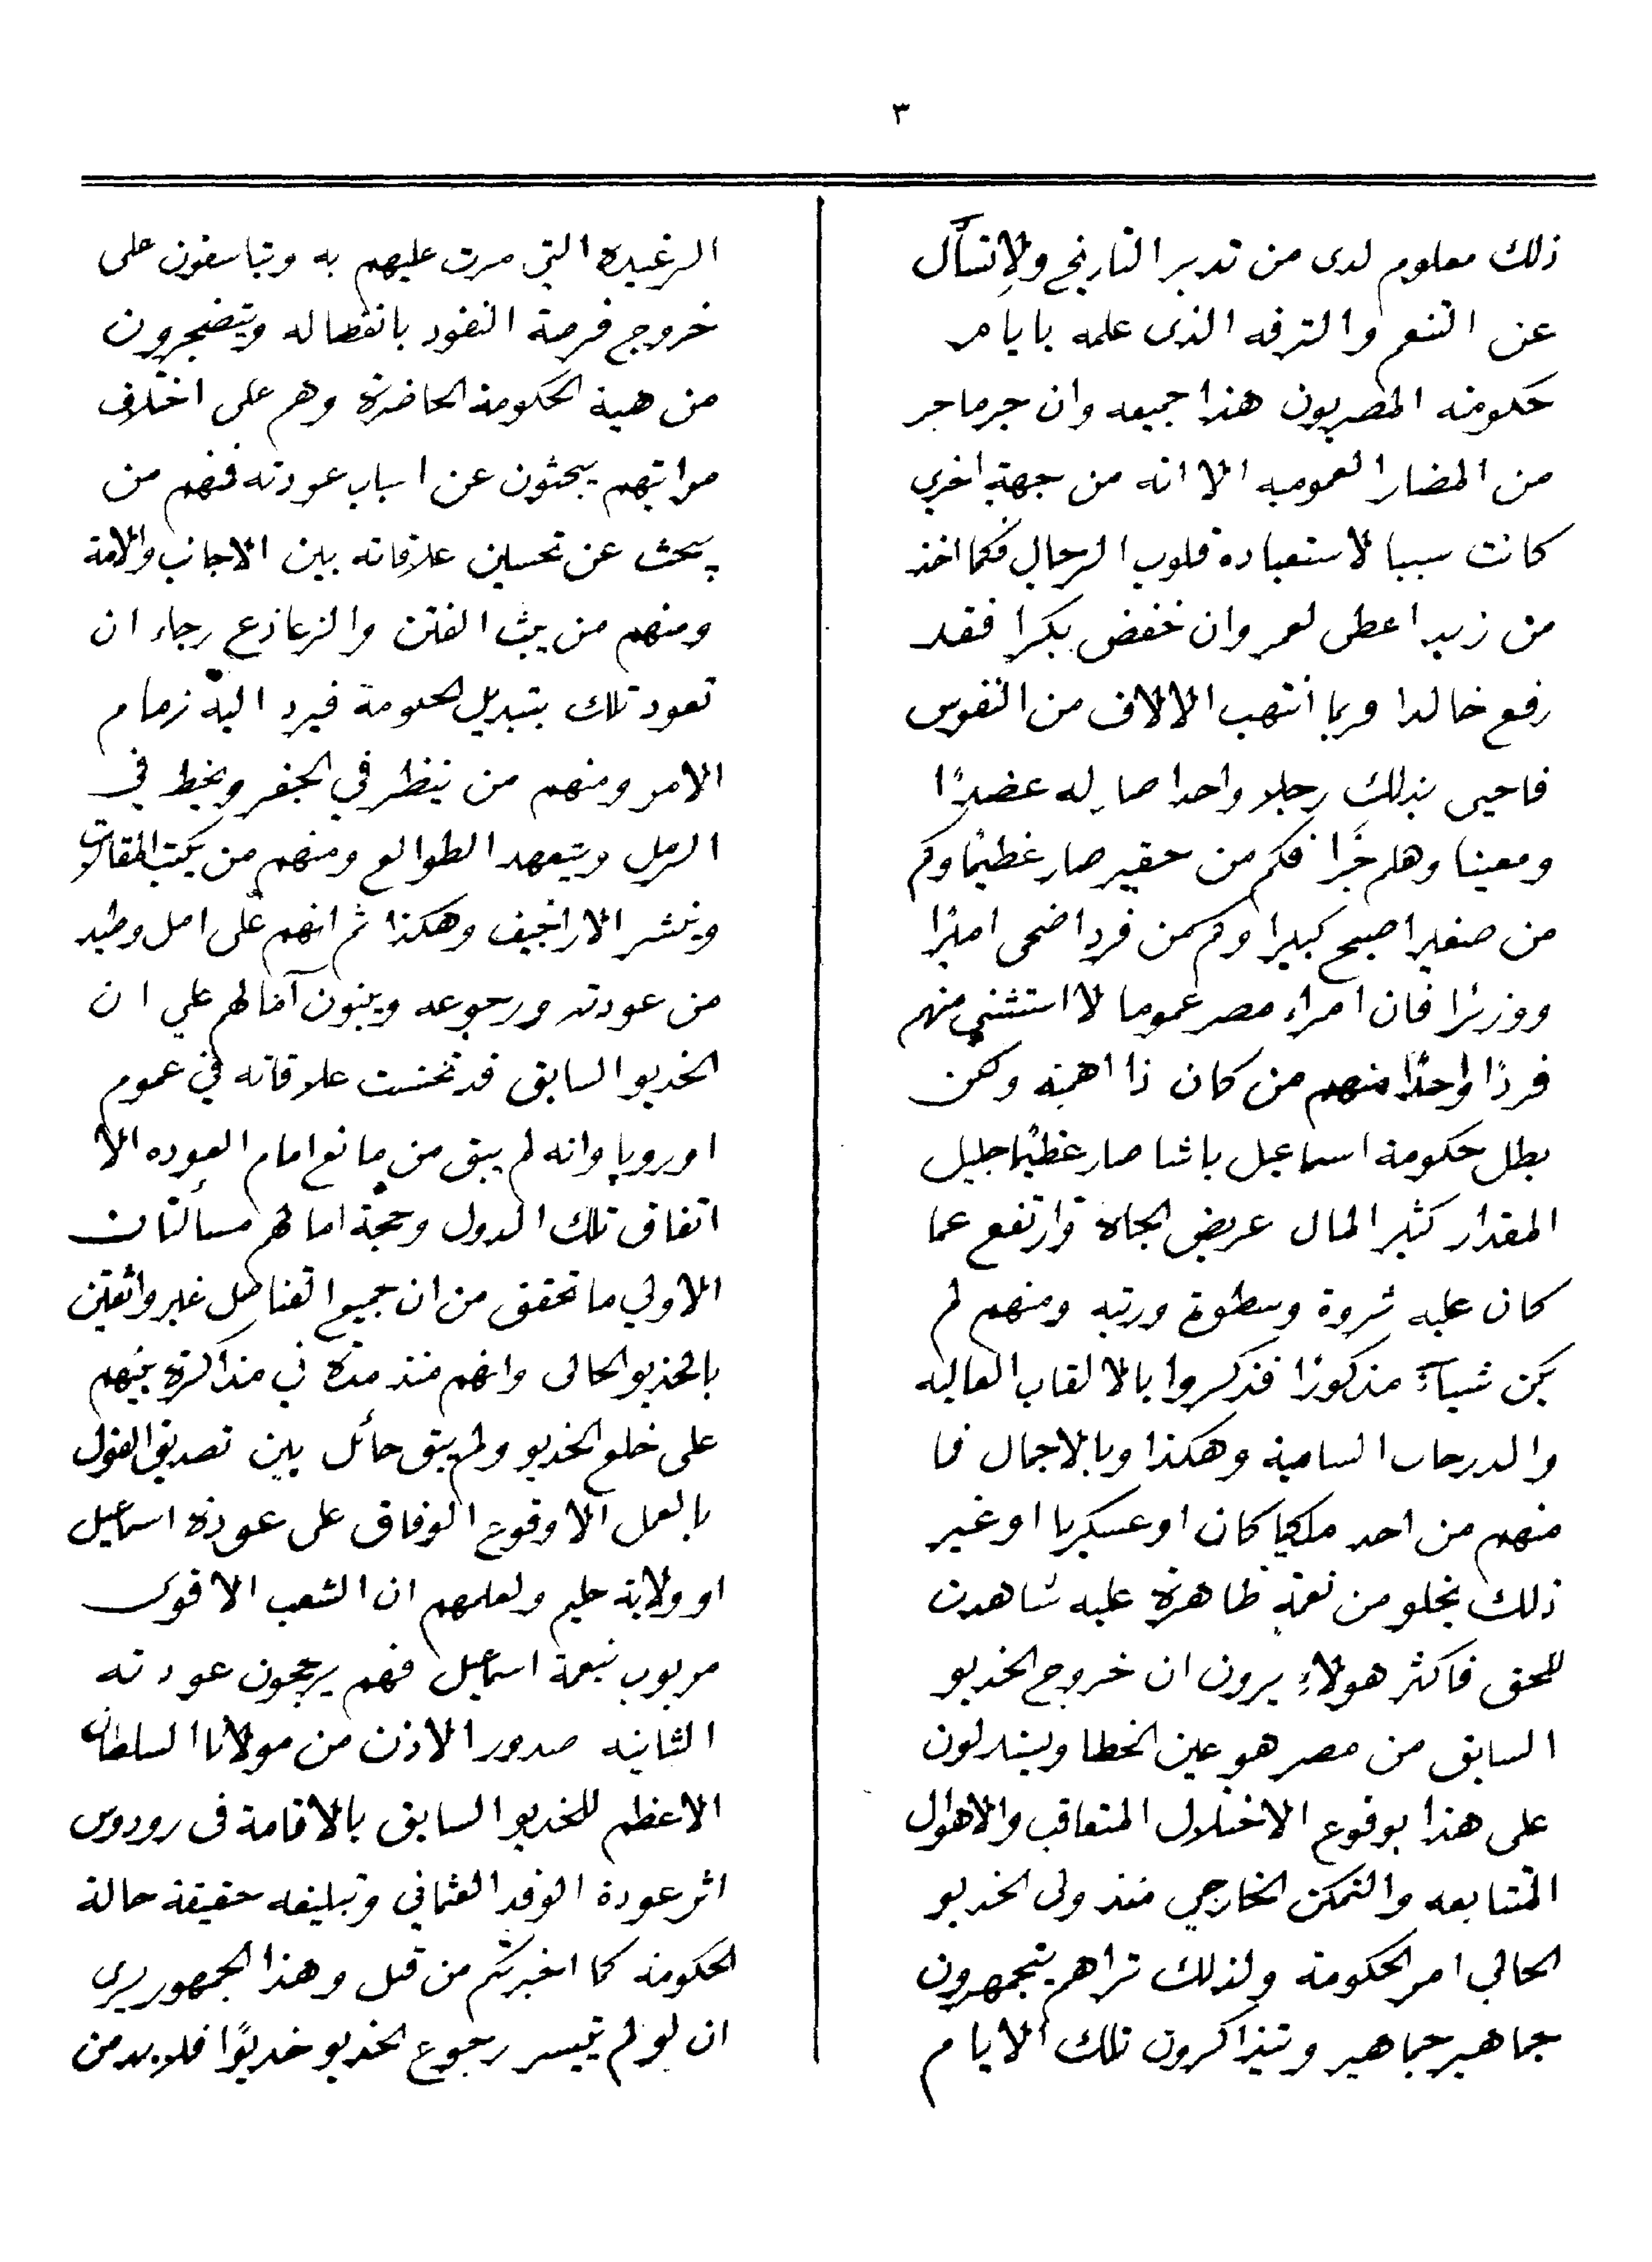 ٣
ذلك معلوم لدى من تدبر التاريخ ولا تسأل
عن التنعم والترفه الذى علمه بايام
حكومته المصريون هذا جميعه وان جر ما جر
من المضار العموميه الا انه من جهة اخرى
كانت سببا لاستعباده قلوب الرجال فكما اخذ
من زيد اعطى لعمر وان خفض بكرا فقد
رفع خالدا وربما انتهب الالاف من النفوس
فاحيى بذلك رجلا واحدا صار له عضدًا
ومعينا وهلم جرًا فكم من حقير صار عظيمًا وكم
من صغير اصبح كبيرا وكم من فرد اضحى اميرًا
ووزيرًا فان امراء مصر عموما لا استثني منهم
فردًا واحدًا منهم من كان ذا اهمية ولكن
بظل حكومة اسماعيل باشا صار عظيمًا جليل
المقدار كثير المال عريض الجاه وارتفع عما
كان عليه ثروة وسطوة ورتبه ومنهم لم
يكن شيأً مذكورًا فذكروا بالالقاب العاليه
والدرجات السامية وهكذا وبالاجمال فما
منهم من احد ملكيا كان او عسكريا او غير
ذلك يخلو من نعمة ظاهرة عليه شاهدت
للحق فاكثر هولاء يرون ان خروج الخديو
السابق من مصر هو عين الخطا ويستدلون
على هذا بوقوع الاختلال المتعاقب والاهوال
المتتابعه والتمكن الخارجي منذ ولى الخديو
الحالي امر الحكومة ولذلك تراهم يتجمهرون
جماهير جماهير ويتذاكرون تلك الايام
الرغيدة التي مرت عليهم به ويتاسفون على
خروج فرصة النفود بانفصاله ويتضجرون
من هيئة الحكومة الحاضرة وهم على اختلاف
مراتبهم يبحثون عن اسباب عودته فمنهم من
يبحث عن تحسين علاقاته بين الاجانب والامة
ومنهم من يبث الفتن والزعازع رجاء ان
تعود تلك بتبديل الحكومة فيرد اليه زمام
الامر ومنهم من ينظر في الجفر ويخط في
الرمل ويتعهد الطوالع ومنهم من يكتب المقالات
وينشر الاراجيف وهكذا ثم انهم على امل وطيد
من عودته ورجوعه ويبنون آمالهم علي ان
الخديو السابق قد تحسنت علاقاته في عموم
اوروپا وانه لم يبق من مانع امام العوده الا
اتفاق تلك الدول وحجة امالهم مسألتان
الاولي ما تحقق من ان جميع القناصل غير واثقين
بالخديو الحالى وانهم منذ مدة في مذاكرة بينهم
على خلع الخديو ولم يبق حائل بين تصديق القول
بالعمل الا وقوع الوفاق على عودة اسماعيل
او ولاية حليم ولعلمهم ان الشعب الاقوى
مربوب نعمة اسماعيل فهم يرجحون عودته
الثانيه صدور الاذن من مولانا السلطان
الاعظم للخديو السابق بالاقامة فى رودوس
اثر عودة الوفد العثماني وتبليغه حقيقة حالة
الحكومة كما اخبرتكم من قبل وهذا الجمهور يرى
ان لو لم تيسر رجوع الخديو خديوًا فلا بد من